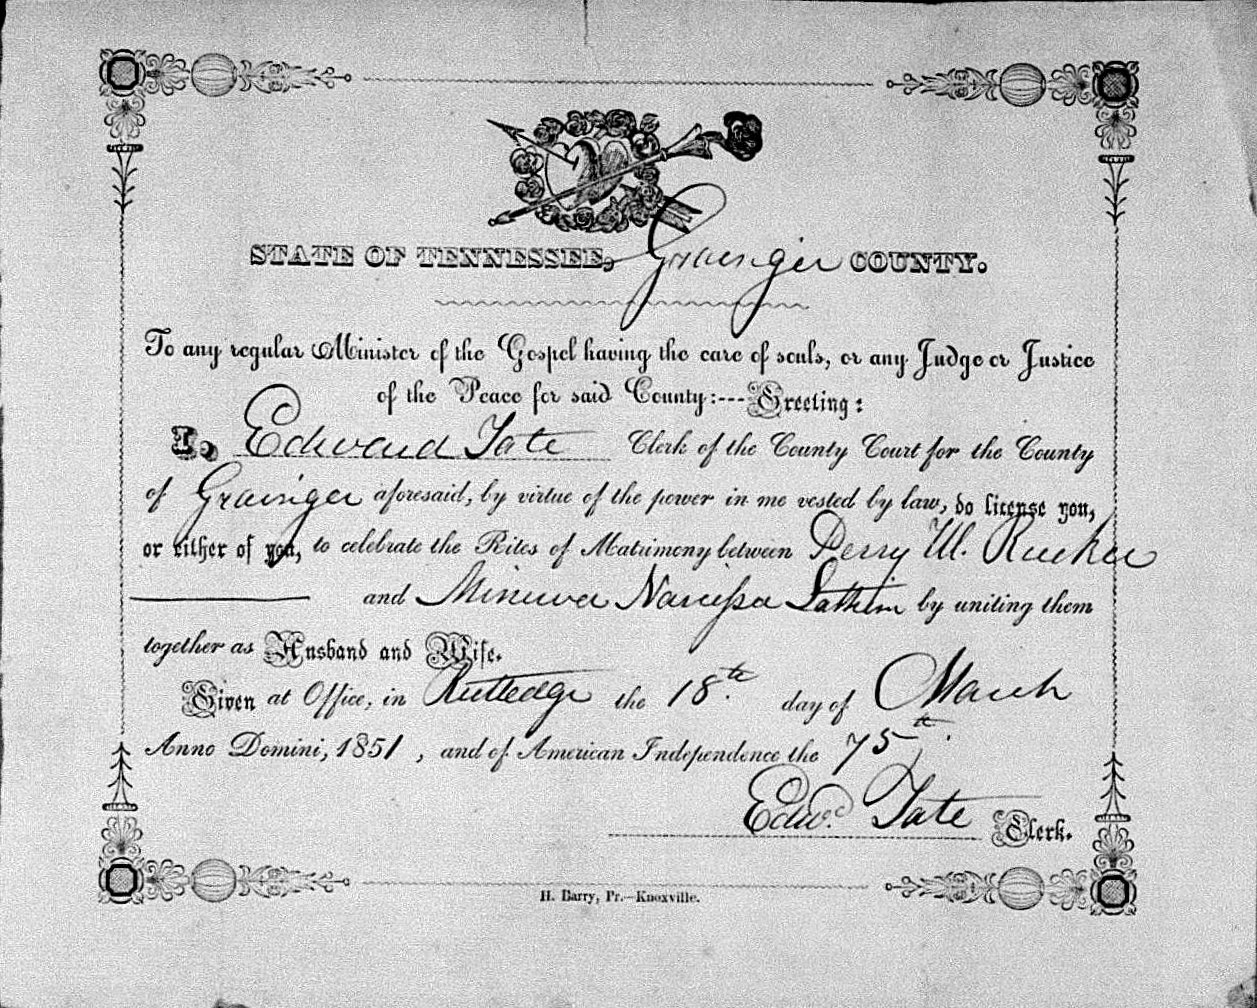 STATE OF TENNESSEE, Grainger COUNTY.
To any regular Minister of the Gospel having the care of souls, or any Judge or Justice
of the Peace for said County:---Greeting:
I, Edward Tate Clerk of the County Court for the County
of Grainger aforesaid, by virtue of the power in me vested by law, do license you,
or either of you, to celebrate the Rites of Matrimony between Perry W. Rucker
and Minerva Narcissa Lathim by uniting them
together as Husband and Wife.
Given at Office, in Rutledge the 18th. day of March
Anno Domini, 1851, and of American Independence the 75th.
Edwd. Tate Clerk.
H. Barry, Pr.—Knoxville.